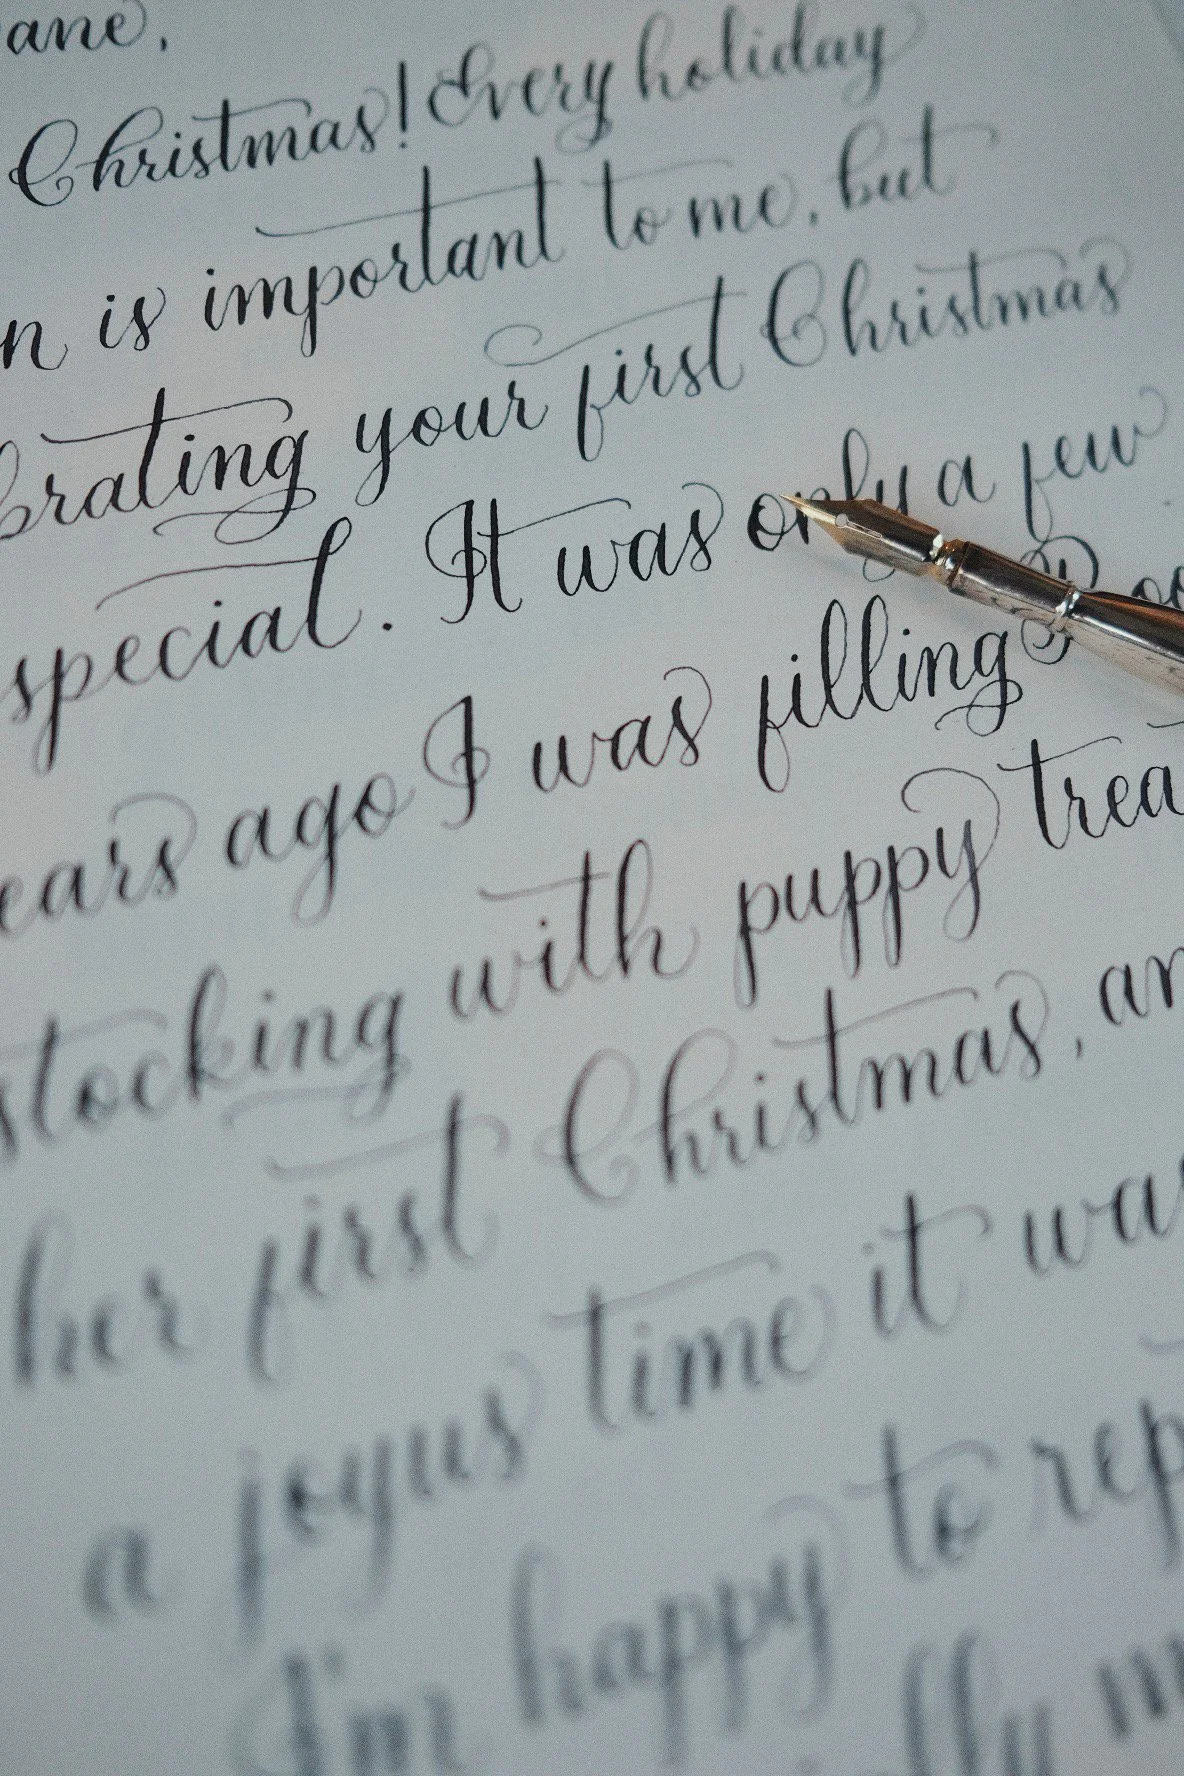 ane,
Christmas! Every holiday
n is important to me, but
brating your first Christmas
special. It was only a few
ears ago I was filling
stocking with puppy trea
her first Christmas, an
a joyus time it was
I'm happy to rep